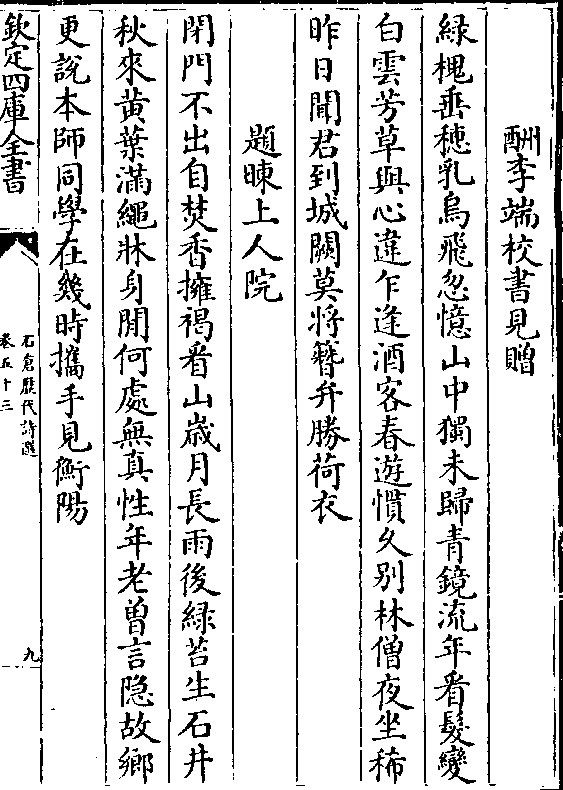 酬李端校書見贈
緑槐垂穗乳烏飛忽憶山中獨未歸青鏡流年看髮變
白雲芳草與心違乍逢酒客春遊慣久别林僧夜坐稀
昨日聞君到城闕莫將簪弁勝荷衣
題暕上人院
閉門不出自焚香擁褐看山嵗月長雨後緑苔生石井
秋來黄葉滿繩牀身閒何處無真性年老曽言隐故鄉
更説本師同學在幾時攜手見衡陽
欽定四庫全書
石倉歴代詩選
卷五十三
九